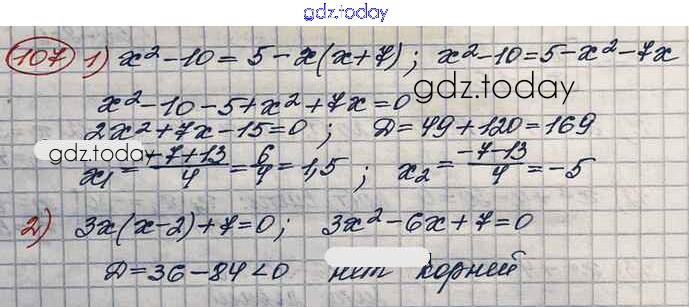 gdz.today
107 1) x² - 10 = 5 - x(x+7); x² - 10 = 5 - x² - 7x
x² - 10 - 5 + x² + 7x = 0 gdz.today
2x² + 7x - 15 = 0; D = 49 + 120 = 169
gdz.today x₁ = (-7+13)/4 = 6/4 = 1,5; x₂ = (-7-13)/4 = -5
2) 3x(x-2) + 7 = 0; 3x² - 6x + 7 = 0
D = 36 - 84 < 0 нет корней